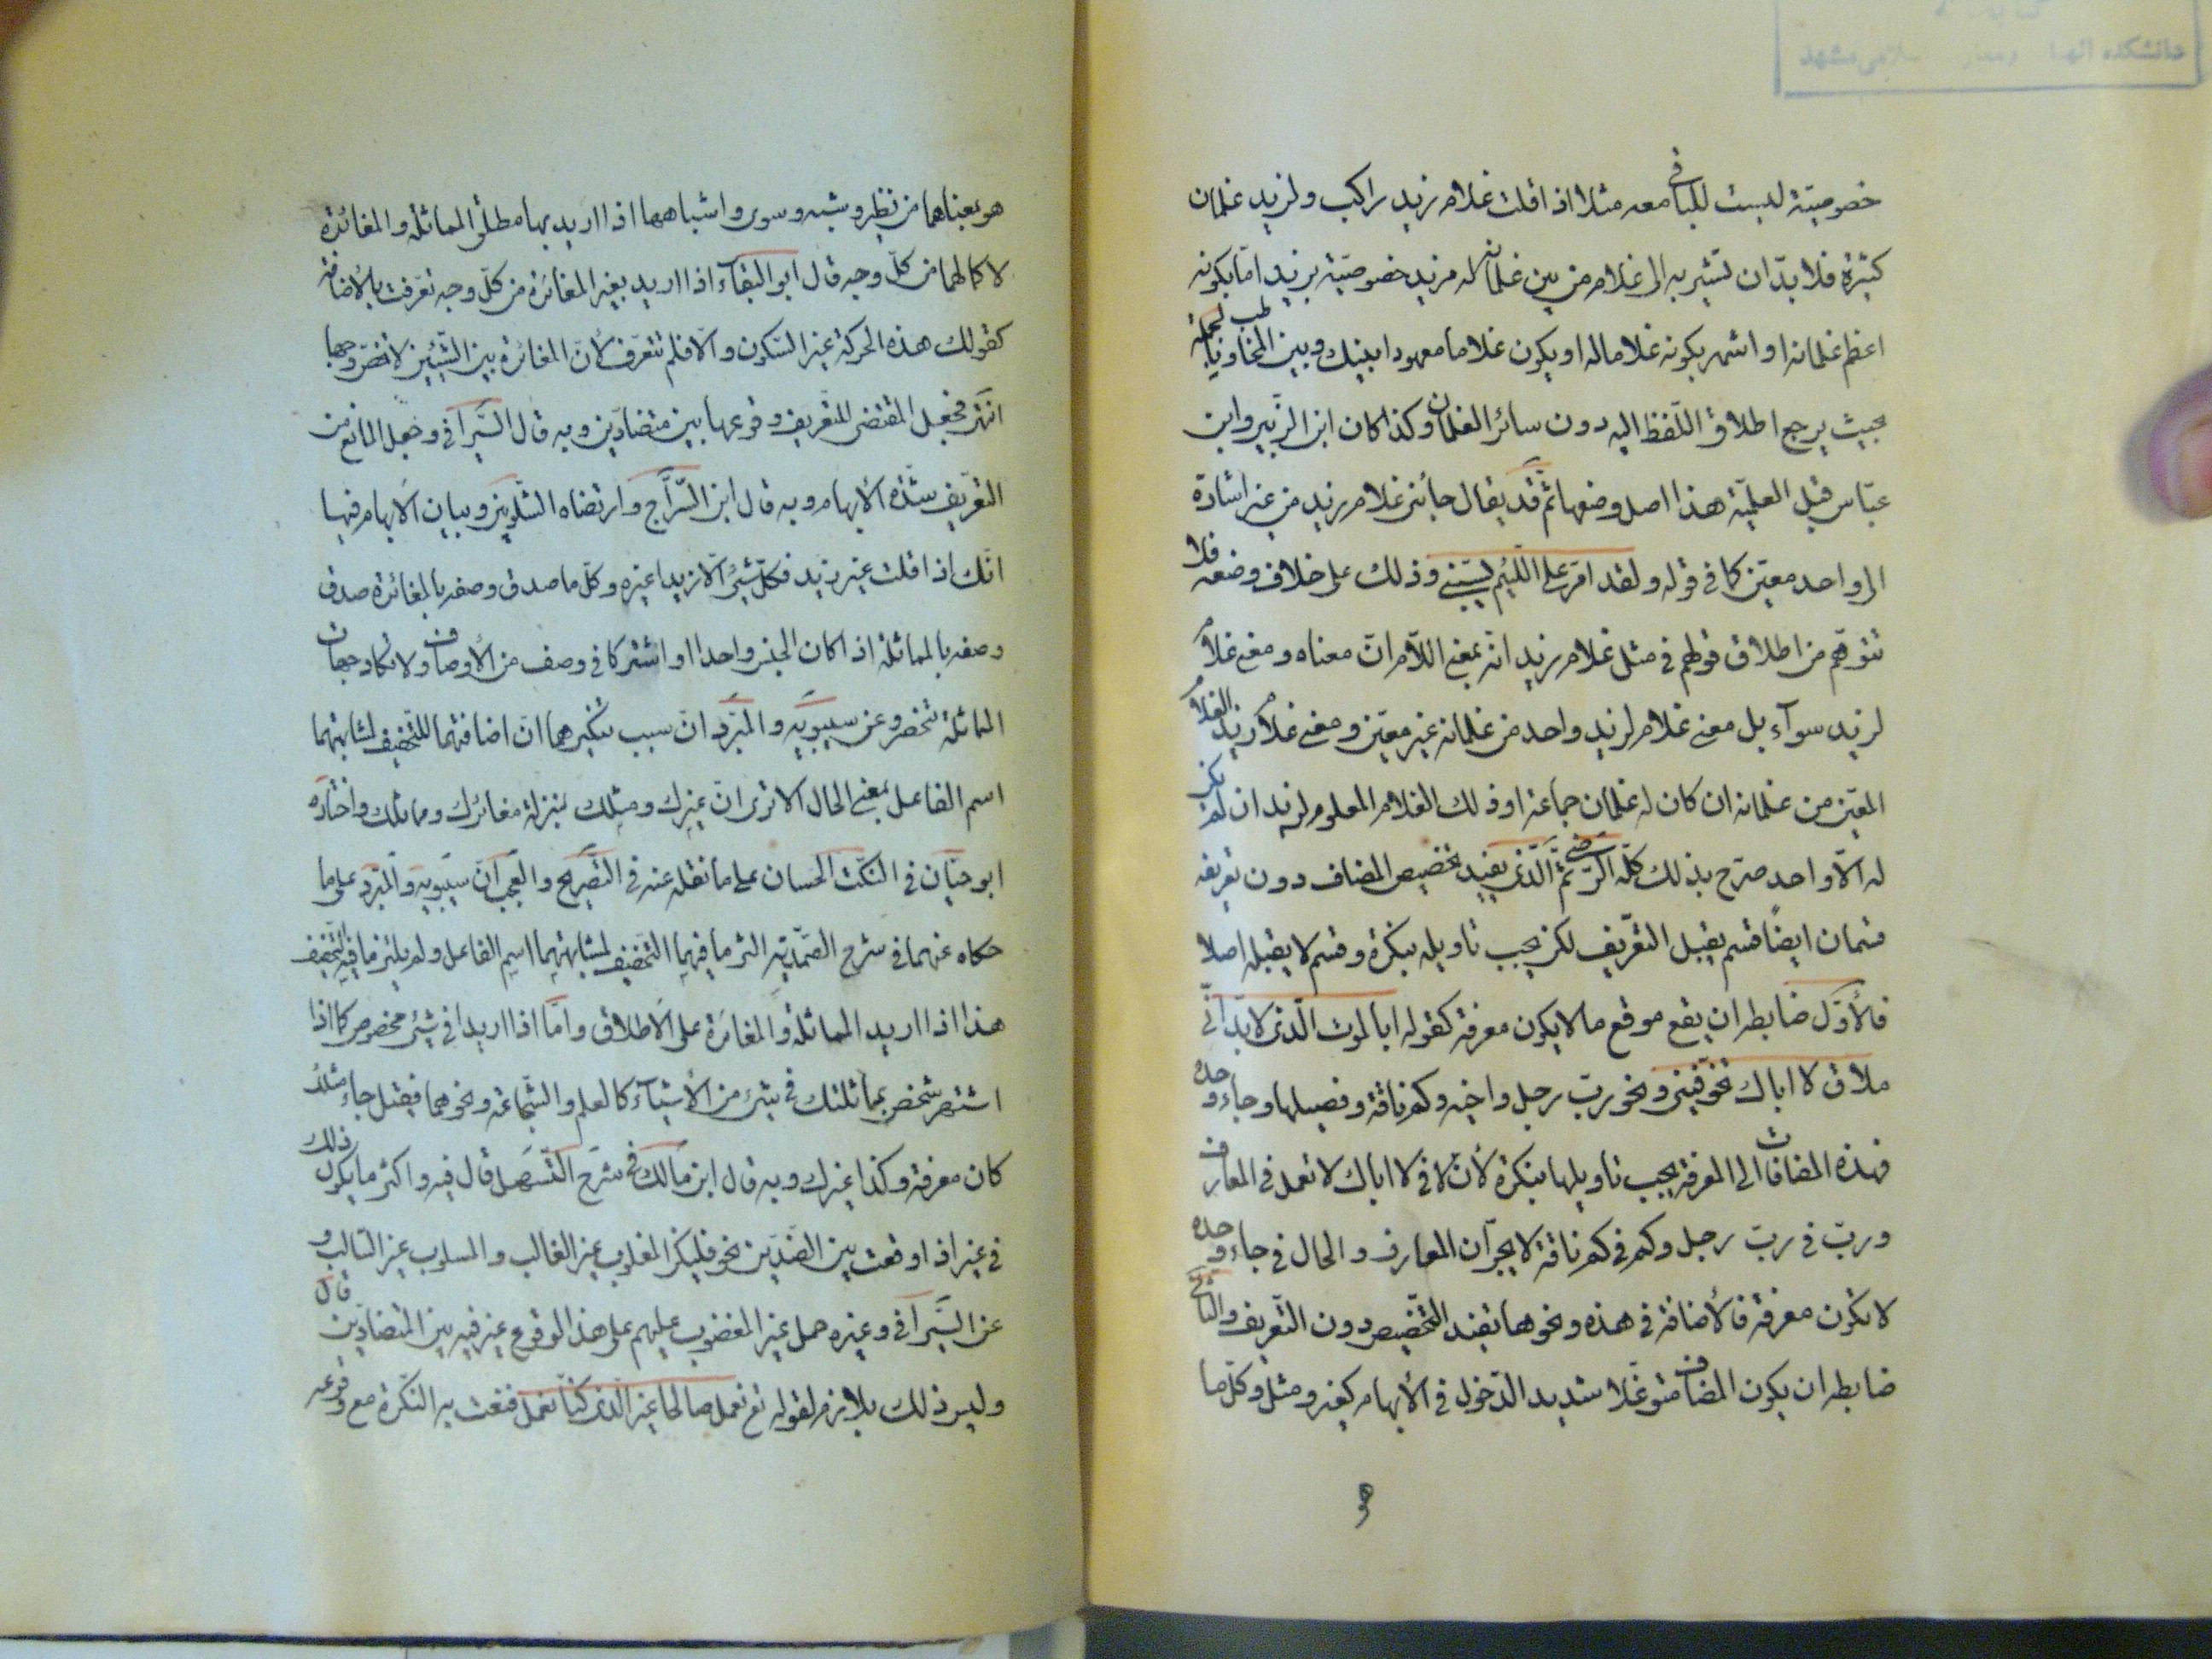 خصوصيّة ليست للباقي معه مثلا اذا قلت غلام زيد راكب ولزيد غلمان
كثيرة فلا بدّ ان تشير به الى غلام من بين غلمانه له مزيد خصوصيّة بزيد امّا بكونه
اعظم غلمانه او اشهر بكونه غلاما له او يكون غلاما معهودا بينك وبين المخاطب وبالجملة
بحيث يرجع اطلاق اللّفظ اليه دون سائر الغلمان وكذا كان ابن الزّبير وابن
عبّاس قبل العلميّة هذا اصل وضعها ثمّ قد يقال جائنى غلام زيد من غير اشارة
الى واحد معيّن كما فى قوله ولقد امرّ على اللّئيم يسبّنى وذلك على خلاف وضعه فلا
تتوهّم من اطلاق قولهم فى مثل غلام زيد انّه بمعنى اللاّم انّ معناه ومعنى غلام
لزيد سوآء بل معنى غلام لزيد واحد من غلمانه غير معيّن ومعنى غلام زيد الغلام
المعيّن من غلمانه ان كان له غلمان جماعة او ذلك الغلام المعلوم لزيد ان لم يكن
له الاّ واحد صرّح بذلك كلّه الرّضى ثمّ الّذى يفيد تخصيص المضاف دون تعريفه
قسمان ايضاً قسم يقبل التعريف لكن يجب تاويله بنكرة وقسم لا يقبله اصلا
فالأوّل ضابطه ان يقع موقع ما لا يكون معرفة كقوله ابالموت الّذى لا بدّ انّى
ملاق لا اباك تخوّفينى ونحو ربّ رجل واخيه وكم ناقة وفصيلها وجاء وحده
فهذه المضافات الى المعرفة يجب تاويلها بنكرة لأنّ لا فى لا اباك لا تعمل فى المعارف
وربّ فى ربّ رجل وكم فى كم ناقة لا يجرّان المعارف والحال فى جاء وحده
لا تكون معرفة فالأضافة فى هذه ونحوها تفيد التّخصيص دون التّعريف والثّانى
ضابطه ان يكون المضاف متوغّلا شديد الدّخول فى الأبهام كغير ومثل وكلّ ما
هو بمعناهما من نظير وشبه وسوى واشباهها اذا اريد بها مطلق المماثلة والمغائرة
لا كمالهما من كلّ وجه قال ابو البقاء اذا اريد بغير المغائرة من كلّ وجه تعرّفت بالأضافة
كقولك هذه الحركة غير السّكون والاّ فلم تتعرّف لأنّ المغائرة بين الشّيئين لا تخصّ وجها
انتهى فجعل المقتضى للتّعريف وقوعها بين متضادّين وبه قال السّيرآفى وجعل المانع من
التعريف شدّة الأبهام وبه قال ابن السّرّاج وارتضاه الشّلوبين وبيان الابهام فيها
انّك اذا قلت غير زيد فكلّ شىء الاّ زيدا غيره وكلّ ما صدق وصفه بالمغائرة صدق
وصفه بالمماثلة اذا كان الجنس واحدا او اشتركا فى وصف من الأوصاف ولا تكاد جهات
المماثلة تنحصر وعن سيبويه والمبرّد انّ سبب تنكيرهما انّ اضافتهما للتّخفيف لمشابهتهما
اسم الفاعل بمعنى الحال الا ترى انّ غيرك ومثلك بمنزلة مغائرك ومماثلك واختاره
ابو حيّان فى النّكت الحسان على ما نقله عنه فى التّصريح والعجب انّ سيبويه والمبرّد على ما
حكاه عنهما فى شرح الصّمديّة التزما فيهما التّخفيف لمشابهتهما اسم الفاعل ولم يلتزما فيه التّخفيف
هذا اذا اريد المماثلة والمغائرة على الاطلاق وامّا اذا اريدا فى شىء مخصوص كما اذا
اشتهر شخص بمماثلتك فى شىء من الأشيآء كالعلم والشّجاعة ونحوهما فقيل جاء مثلك
كان معرفة وكذا غيرك وبه قال ابن مالك فى شرح التّسهيل قال فيه واكثر ما يكون ذلك
فى غير اذا وقعت بين الضدّين نحو فليكن المغلوب غير الغالب والمسلوب غير السّالب و
عن السّيرآفى وغيره حمل غير المغضوب عليهم على هذا لوقوع غير فيه بين المتضادّين قال
وليس ذلك بلازم لقوله تع نعمل صالحا غير الّذى كنّا نعمل فنعت به النّكرة مع وقوعه